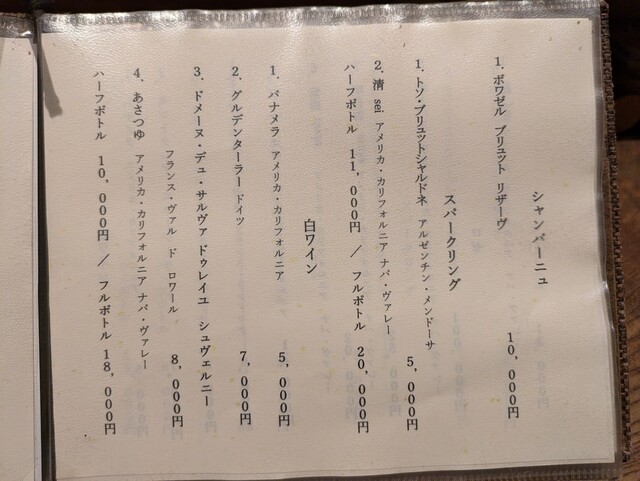 シャンパーニュ
1. ボワゼル ブリュット リザーヴ 10,000円
スパークリング
1. トソ・ブリュットシャルドネ アルゼンチン・メンドーサ 5,000円
2. 清 sei アメリカ・カリフォルニア ナパ・ヴァレー
ハーフボトル 11,000円 / フルボトル 20,000円
白ワイン
1. パナメラ アメリカ・カリフォルニア 5,000円
2. グルデンターラー ドイツ 7,000円
3. ドメーヌ・デュ・サルヴァドゥレイユ シュヴェルニー
フランス・ヴァル ド ロワール 8,000円
4. あさつゆ アメリカ・カリフォルニア ナパ・ヴァレー
ハーフボトル 10,000円 / フルボトル 18,000円